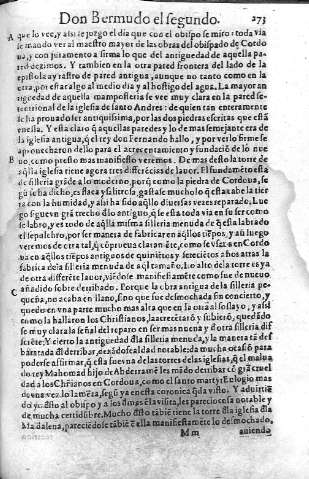 Don Bermudo el segundo. 273
A que lo vee, y assi se juzgo el dia que con el obispo se miro: toda via
se mando ver al maestro mayor de las obras del obispado de Cordo
ua, y con juramento afirma lo que del antiguedad de aquella pa-
red dezimos. Y tambien en la otra pared frontera del lado de la
epistola ay rastro de pared antigua, aunque no tanto como en la
otra, por estar algo al medio dia y al hostigo del agua. La mayor an
tiguedad de aquella mamposteria se vee muy clara en la pared se-
tentrional de la iglesia de santo Andres: de quien tan enteramente
se ha prouado ser antiquissima, por las dos piedras escritas que está
en ella. Y está claro q̃ aquellas paredes y lo de mas semejante era de
la iglesia antigua, q̃ el rey don Fernando hallo, y por verlo firme se
aprouecharon dello para el acrecentamiento y fundació de lo nue
B uo, como presto mas manifiesto veremos. De mas desto la torre de
aq̃lla iglesia tiene agora tres differẽcias de lauor. El fundamẽto está
de silleria grãde a lo moderno, porq̃ como la piedra de Cordoua, se
gũ se ha dicho, es flaca y salitrosa, gastase mucho lo q̃ esta cabe la tier
ra con la humidad, y assi ha sido aq̃llo diuersas vezes reparado. Lue
go sigue vn grã trecho d̃lo antiguo, q̃ se está toda via en su ser como
se labro, y es todo de aq̃lla misma silleria menuda de q̃ esta labrado
el sepulchro, por ser manera de fabricar en aq̃llos tiẽpos, y aũ luego
veremos de otra tal, q̃ cõprueua claramẽte, como se vsaua en Cordo
ua en aq̃llos tiẽpos antiguos de quinietos y setecietos años atras la
fabrica desta silleria menuda de aq̃l tamaño. Lo alto de la torre es ya
de otra differẽte lauor, viẽdose manifiestamẽte como fue de nueuo
añadido sobre derribado.
C Porque la obra antigua de la silleria pe-
queña, no acaba en llano, sino que fue desmochada sin concierto, y
quedo en vna parte mucho mas alta que en la otra al soslayo, y assi
como la hallaron los Christianos, la acrecẽtarõ y subierõ, quedãdo
se muy clara la señal del reparo en ser mas nueua y d̃ otra silleria dif
ferẽte. Y cierto la antiguedad d̃lla silleria menuda, y la manera tã des
baratada d̃ derribar, dexãdose alda d notable: da mucha ocasiõ para
poderse affirmar, q̃ esta fue vna de las torres de las iglesias, q̃ el maluado
rey Mahomad hijo de Abderrame les mãdo derribar cõ grã cruel
dad a los Chr̃ianos en Cordoua, como el santo martyr Eulogio mas
de vna vez lo lamẽta, segũ ya en esta coronica q̃da visto. Y aduirtiẽ
do yo d̃sto al obispo y a los d̃mas en la visita, les parecio cosa notable y
de mucha certidũbre. Mucho desto tãbiẽ tiene la torre d̃la iglesia d̃la
Madalena, pareciẽdose tãbiẽ en ella manifiestamẽte lo desmochado,
Mm auiendo